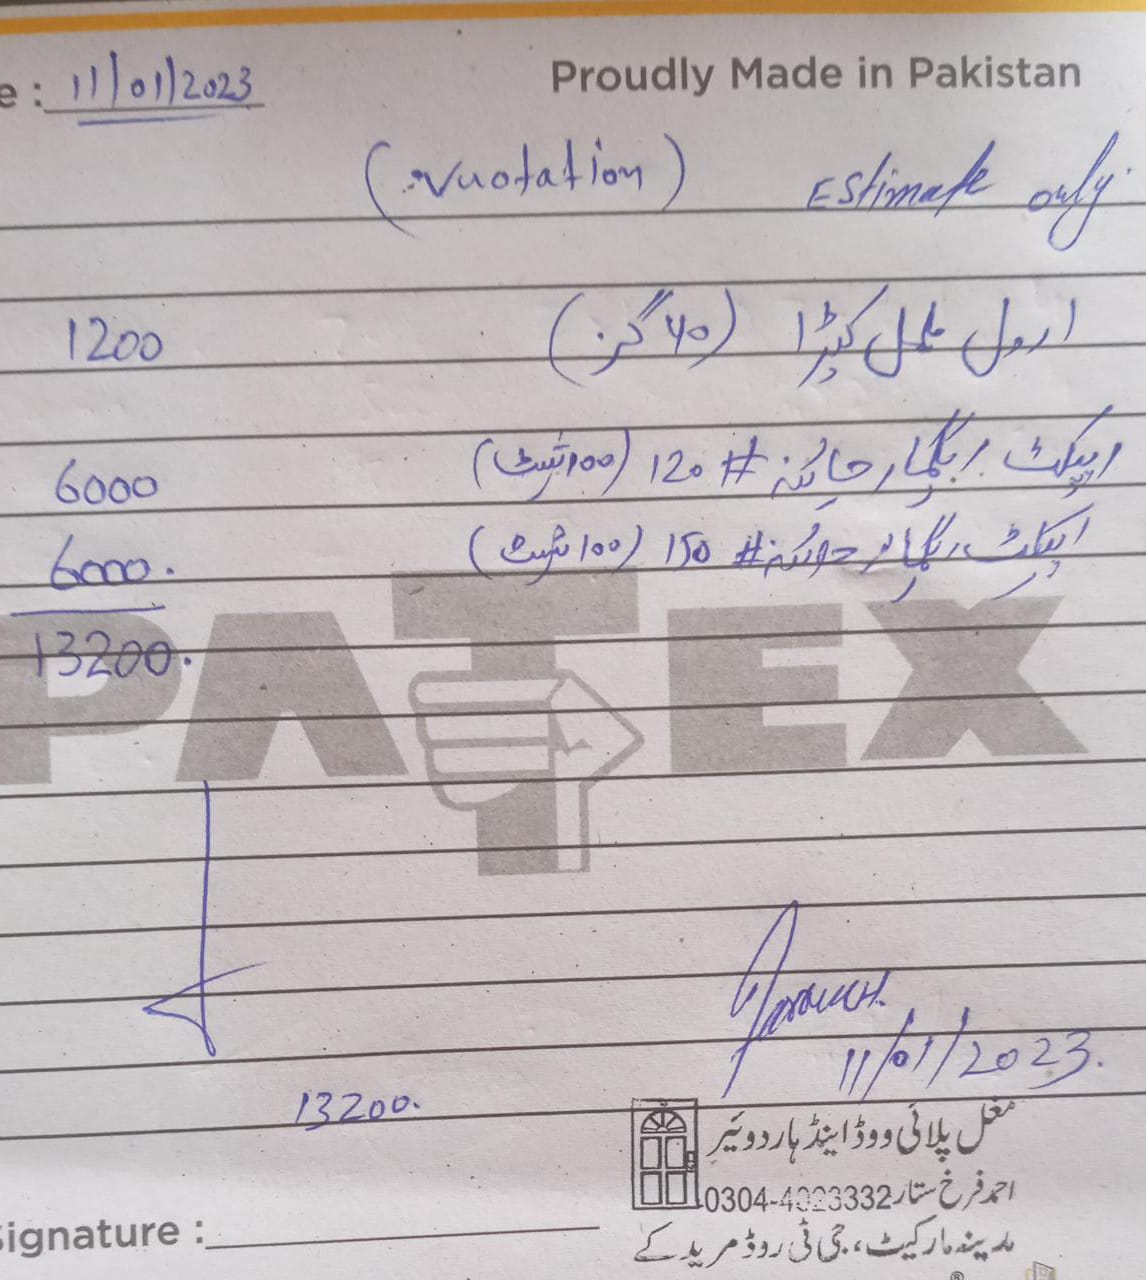 e : 11/01/2023
Proudly Made in Pakistan
(Quotation) Estimate only.
ا رول ململ کپڑا (40 گز) 1200
ا پیکٹ ریگمار چائنہ # 120 (100 شیٹ) 6000
ا پیکٹ ریگمار چائنہ # 150 (100 شیٹ) 6000.
13200.
PATEX
11/01/2023.
13200.
مغل پلائی ووڈ اینڈ ہارڈویئر
احمد فرخ ستار 0304-4023332
مدینہ مارکیٹ، جی ٹی روڈ مرید کے
ignature :